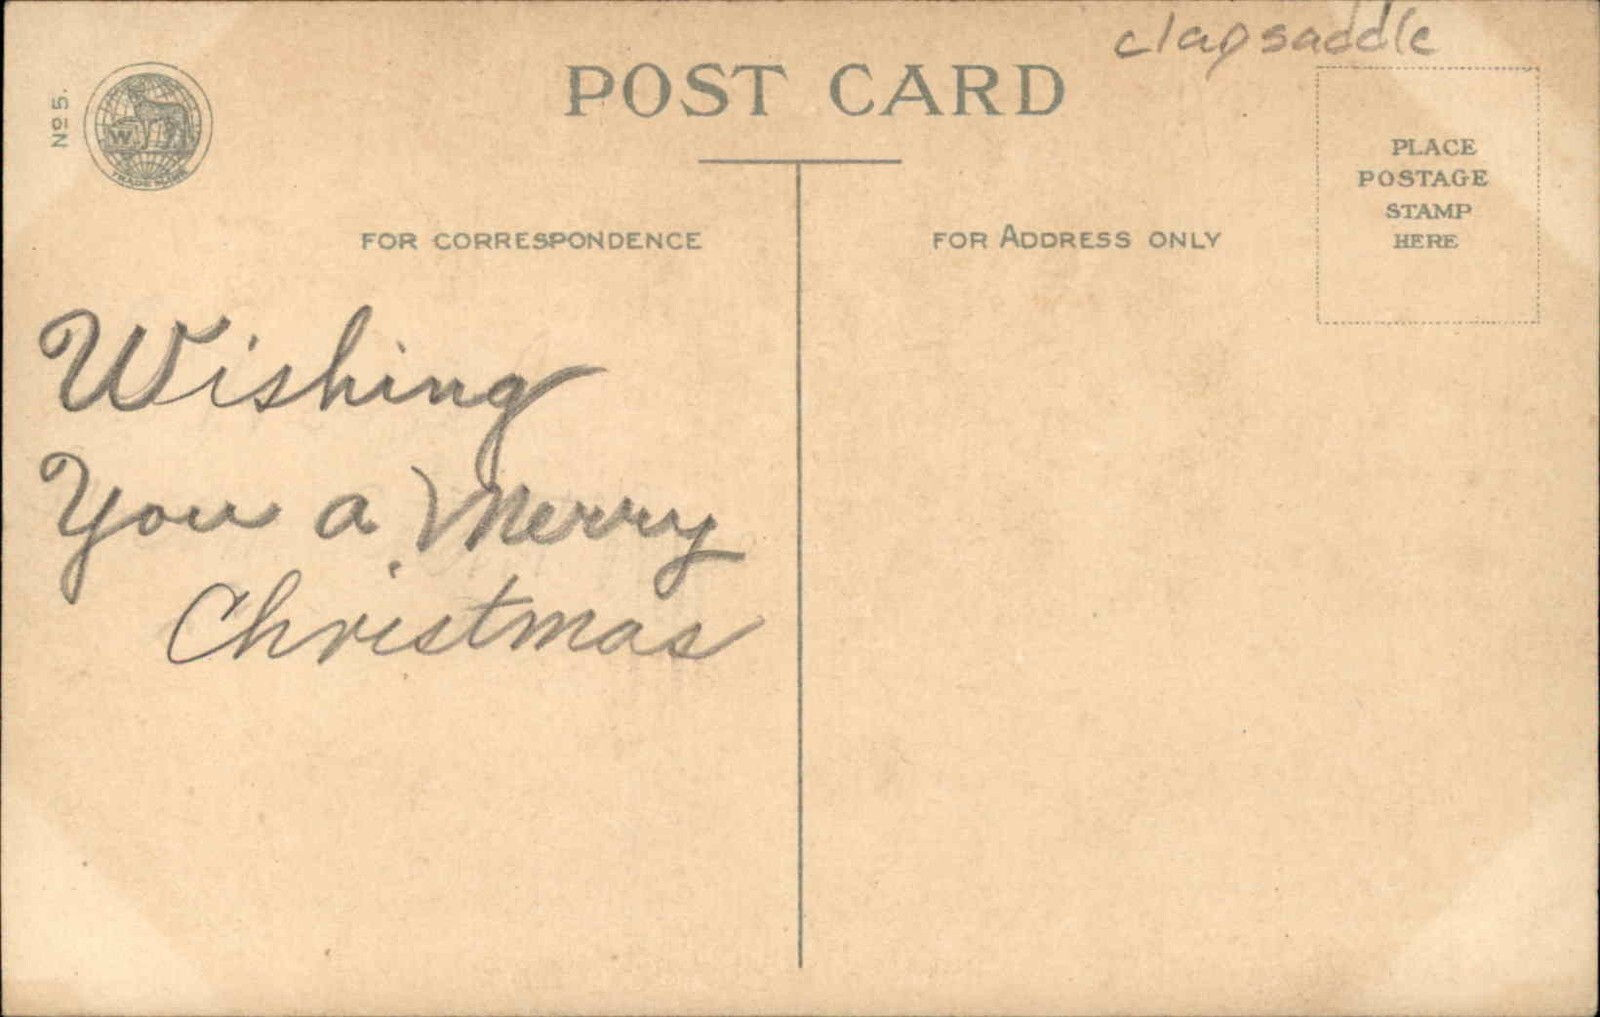 clapsaddle
POST CARD
Nº 5.
W
TRADE MARK
PLACE
POSTAGE
STAMP
HERE
FOR CORRESPONDENCE
FOR ADDRESS ONLY
Wishing
You a Merry
Christmas